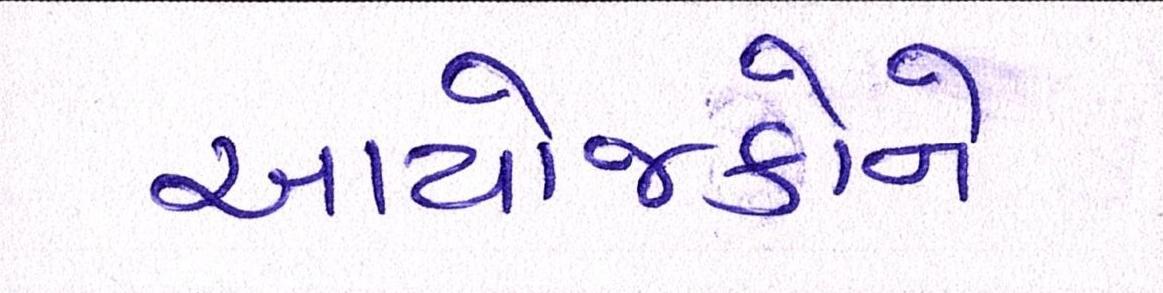 આયોજકોને